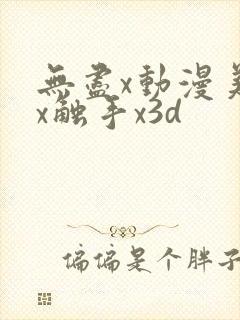 無盡x動漫美
x触手x3d
偏偏是个胖子